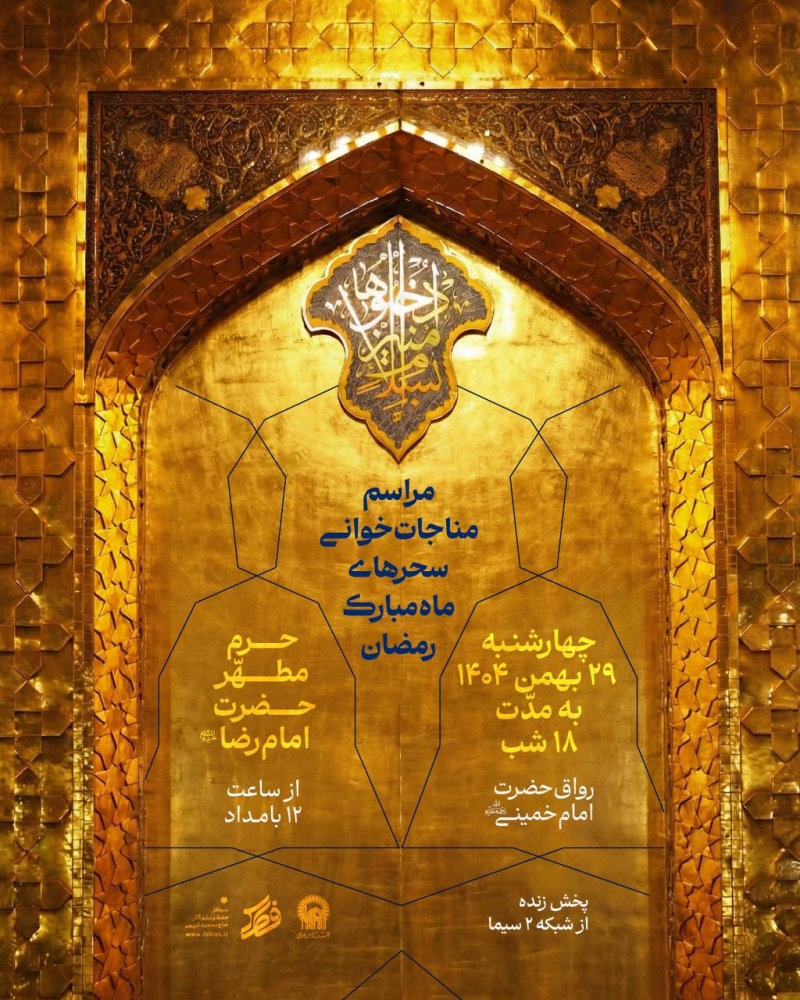 ادخلوها
بسلام
آمنین
مراسم
مناجات‌خوانی
سحرهای
ماه مبارک
رمضان
چهارشنبه
۲۹ بهمن ۱۴۰۴
به مدّت
۱۸ شب
حرم
مطهّر
حضرت
امام رضا
رواق حضرت
امام خمینی
از ساعت
۱۲ بامداد
پخش زنده
از شبکه ۲ سیما
حفظ و نشر آثار
حاج محمود کریمی
www.fotros.ir